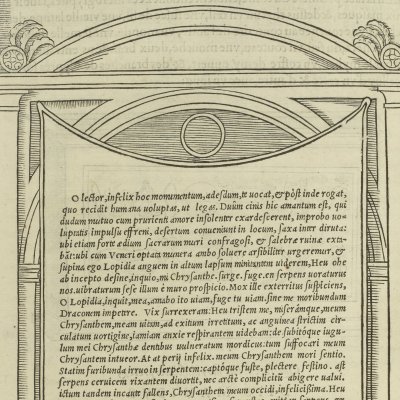 O lector, infelix hoc monumentum, adesdum, te uocat, & pòst inde rogat,
quo recidit humana uoluptas, ut legas. Duùm cinis hic amantum est, qui
dudum mutuo cum prurienti amore insolenter exardescerent, improbo uo-
luptatis impulsu effreni, desertum conueniunt in locum, saxa inter diruta:
ubi etiam forte ædium sacrarum muri confragosi, & salebræ ruinæ exta-
bāt: ubi cum Veneri optata munera ambo soluere arsibiliter urgeremur, &
supina ego Lopidia anguem in altum lapsum minitantem uiderem, Heu ohe
ab incepto desine, inquio, mi Chrysanthe. surge. fuge. en serpens uoraturus
nos. uibraturum sese illum è muro prospicio. Mox ille exterritus suspiciens,
O Lopidia, inquit, mea, amabo ito uiam, fuge tu uiam. sine me moribundum
Draconem impetere. Vix surrexeram: Heu tristem me, miserámque, meum
Chrysanthem, meam uitam, ad exitum irretitum, ac anguinea strictim cir-
culatum uortigine, iamiam anxie respirantem uidebam: de subitóque iugu-
lum mei Chrysanthæ dentibus uulneratum mordicus: tum suffocari meum
Chrysantem intueor. At at perij infelix. meum Chrysanthem mori sentio.
Statim furibunda irruo in serpentem: captóque fuste, plectere festino. ast
serpens ceruicem rixantem diuortit, nec arctè complicitū abigere ualui,
ictum tandem incaute fallens, Chrysanthem meum occidi, infelicißima. Heu